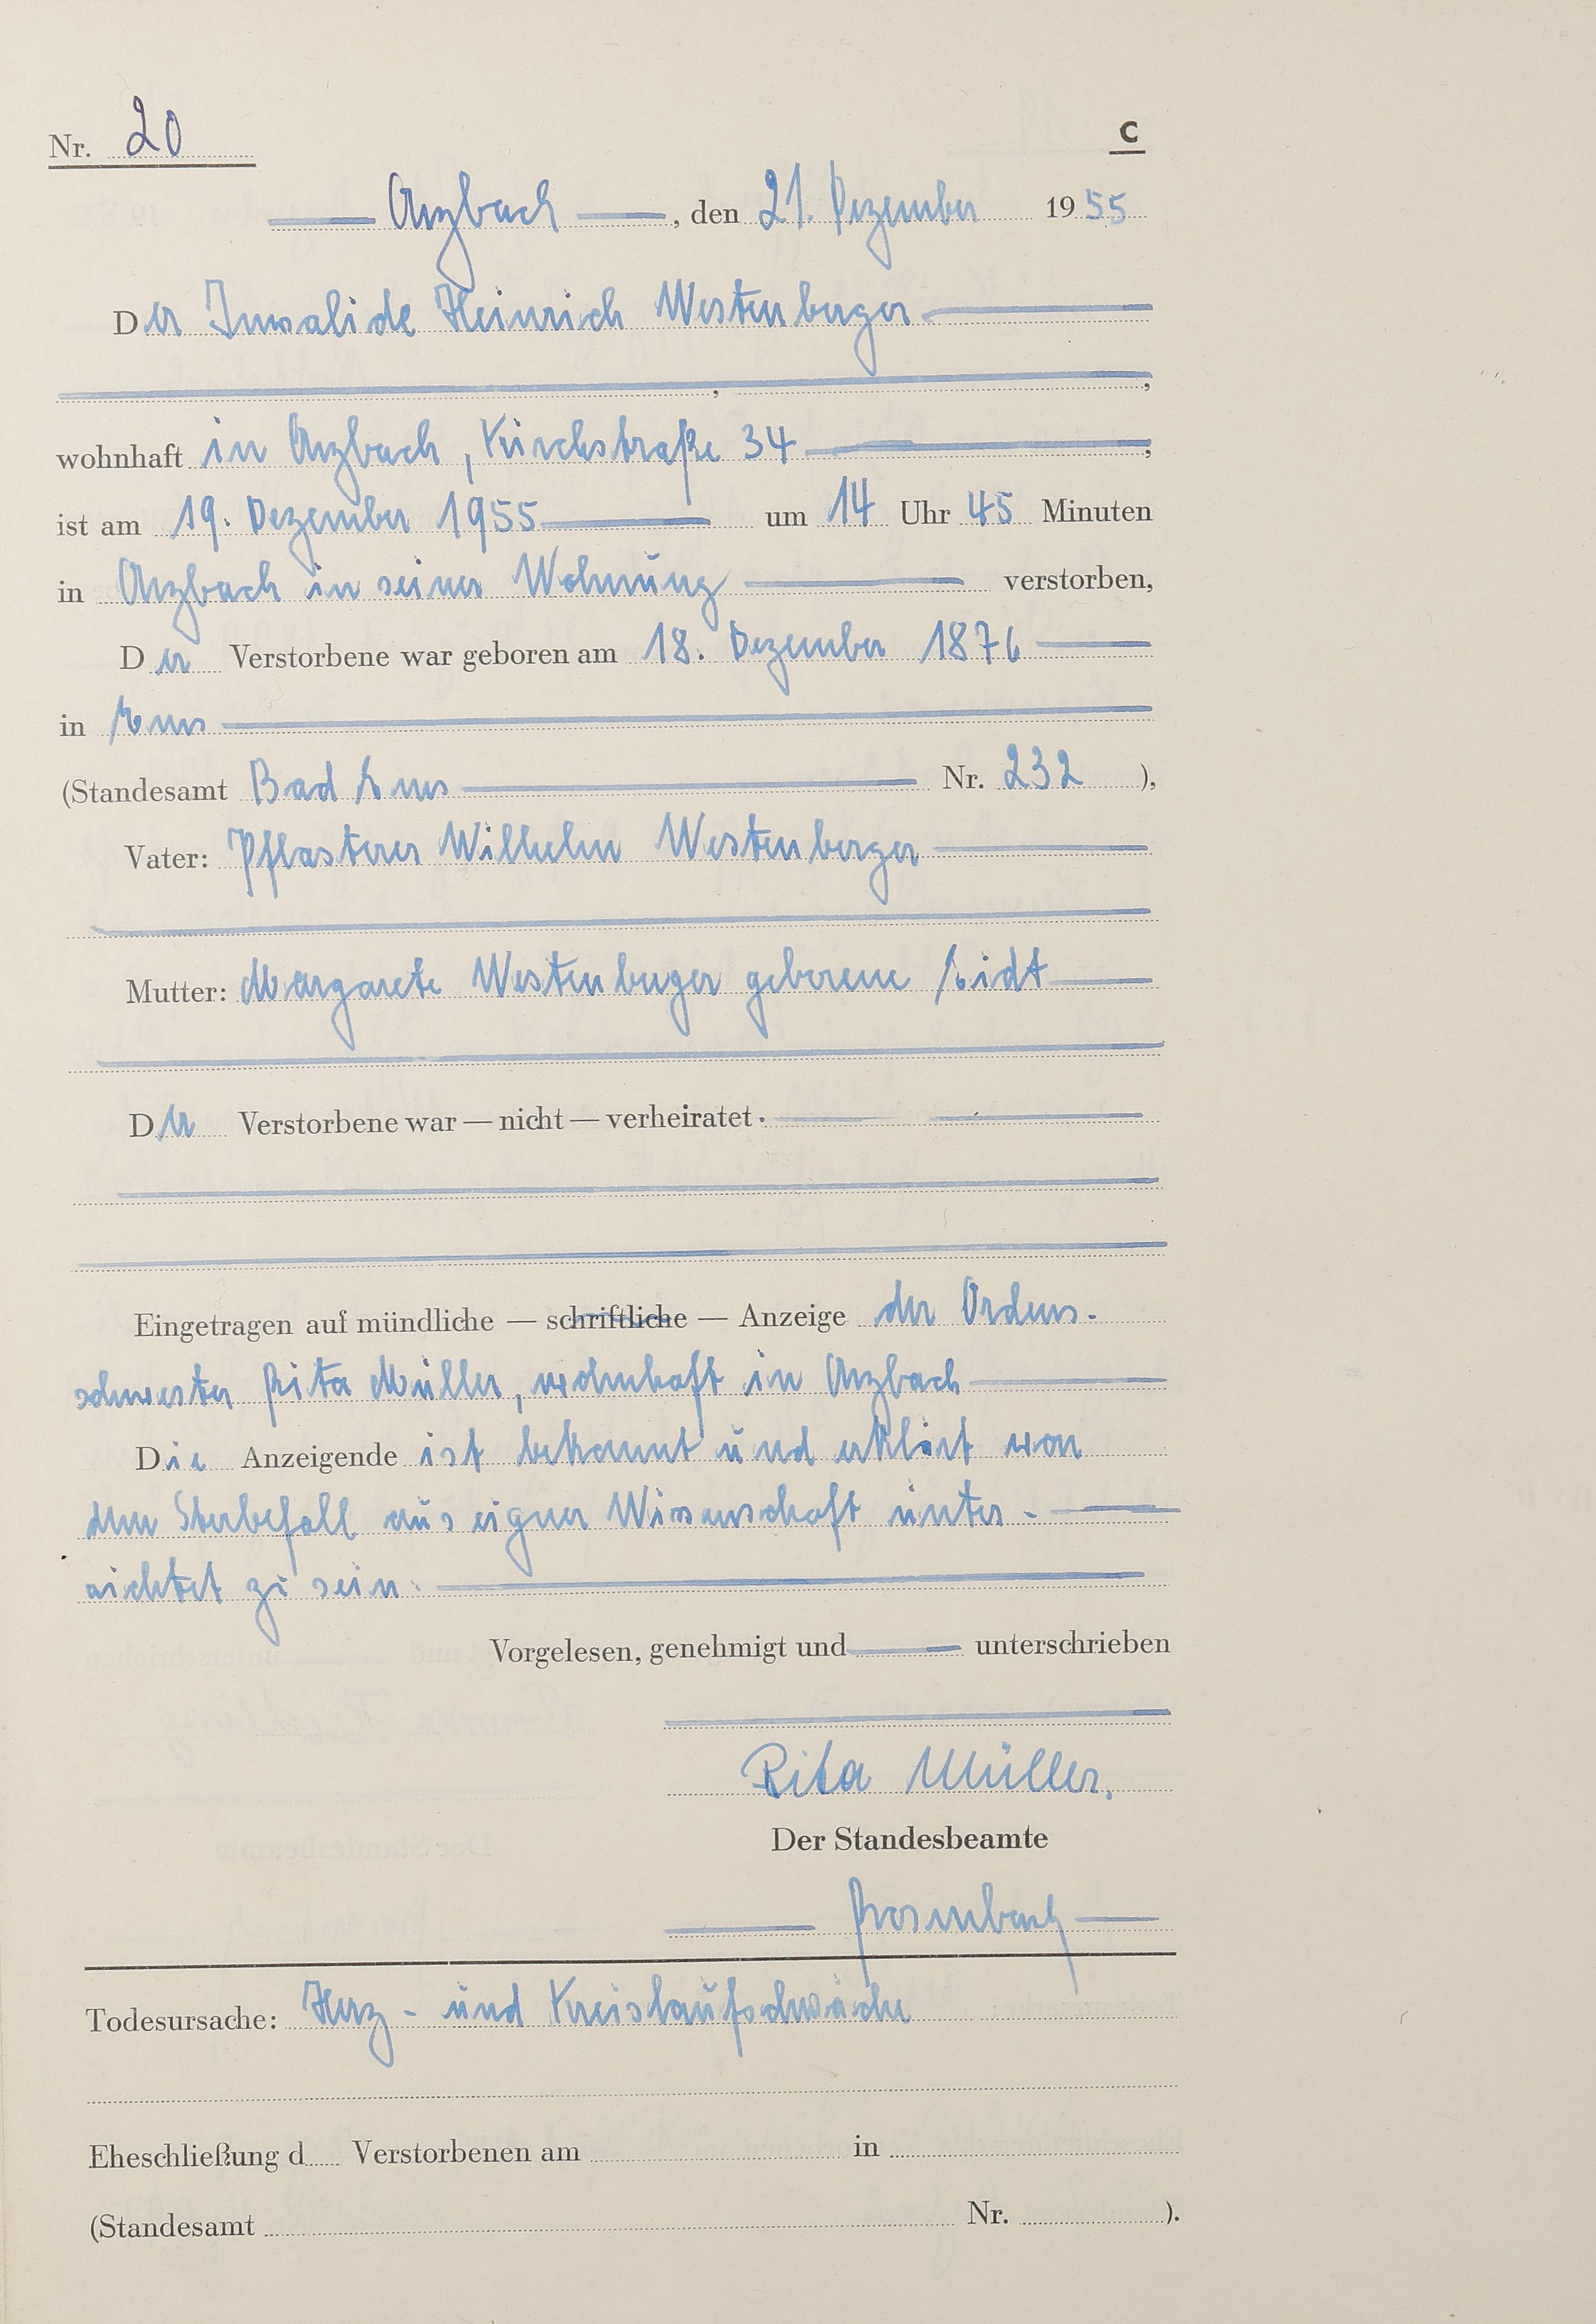 Nr. 20
C
Arzbach, den 21. Dezember 1955
Der Invalide Heinrich Westenberger
wohnhaft in Arzbach, Kirchstraße 34,
ist am 19. Dezember 1955 um 14 Uhr 45 Minuten
in Arzbach in seiner Wohnung verstorben,
Der Verstorbene war geboren am 18. Dezember 1876
in Ems
(Standesamt Bad Ems Nr. 232 ),
Vater: Pflasterer Wilhelm Westenberger
Mutter: Margarete Westenberger geborene
Der Verstorbene war — nicht — verheiratet.
Eingetragen auf mündliche — schriftliche — Anzeige der Ordens-
schwester Rita Müller, wohnhaft in Arzbach
Die Anzeigende ist bekannt und erklärt von
dem Sterbefall aus eigner Wissenschaft unter-
richtet zu sein.
Vorgelesen, genehmigt und unterschrieben
Rita Müller.
Der Standesbeamte
Todesursache: Herz- und Kreislaufschwäche
Eheschließung d Verstorbenen am in
(Standesamt Nr. ).